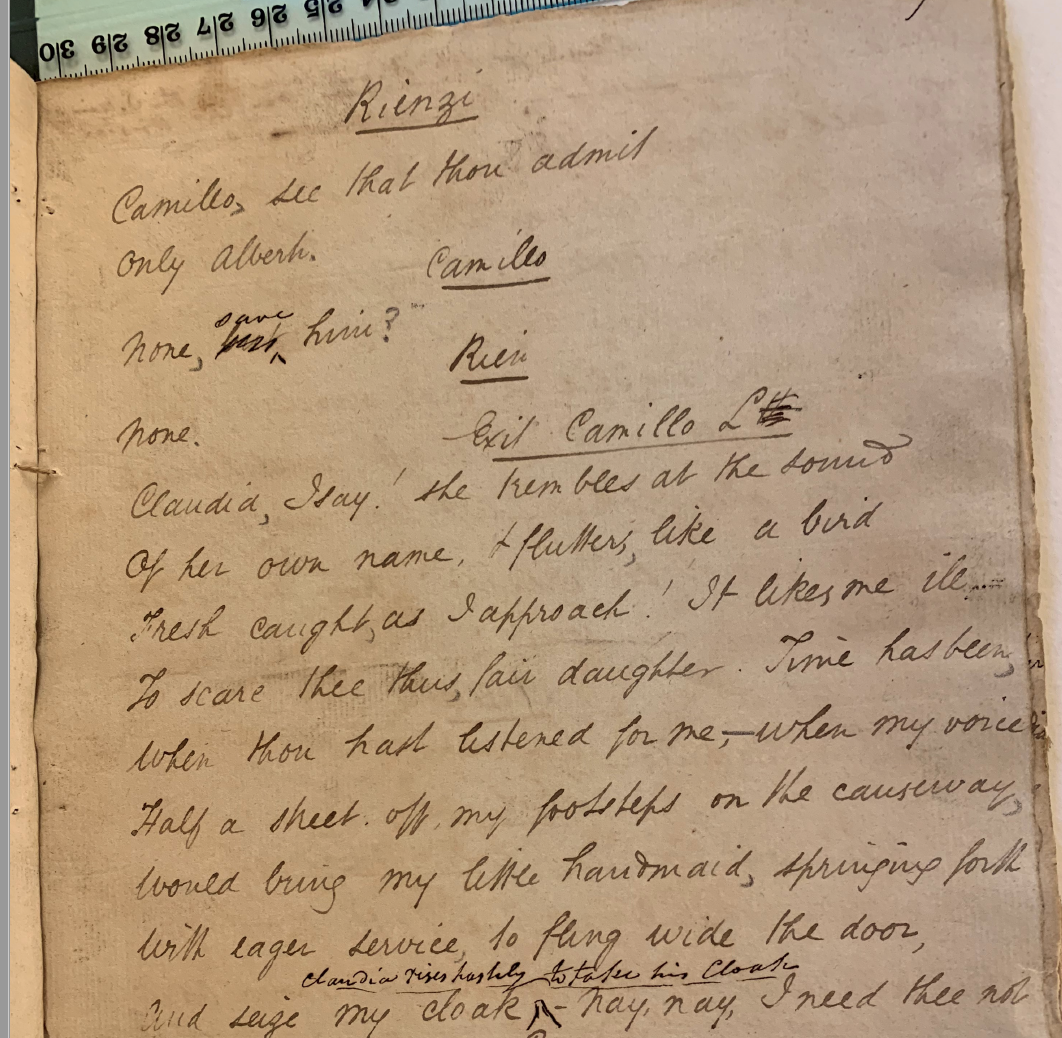 30 29 28 27 26 25 24
Rienzi
Camillo, see that thou admit
Only Alberti.
Camillo
None, save him?
Rien
None.
Exit Camillo L
Claudia, I say! she trembles at the sound
Of her own name, & flutters, like a bird
Fresh caught, as I approach! It likes me ill
To scare thee thus, fair daughter. Time has been,
When thou hast listened for me,—when my voice
Half a street off, my footsteps on the causeway,
Would bring my little handmaid, springing forth
With eager service, to fling wide the door,
Claudia rises hastily to take his Cloak
And seize my cloak - Nay, nay, I need thee not